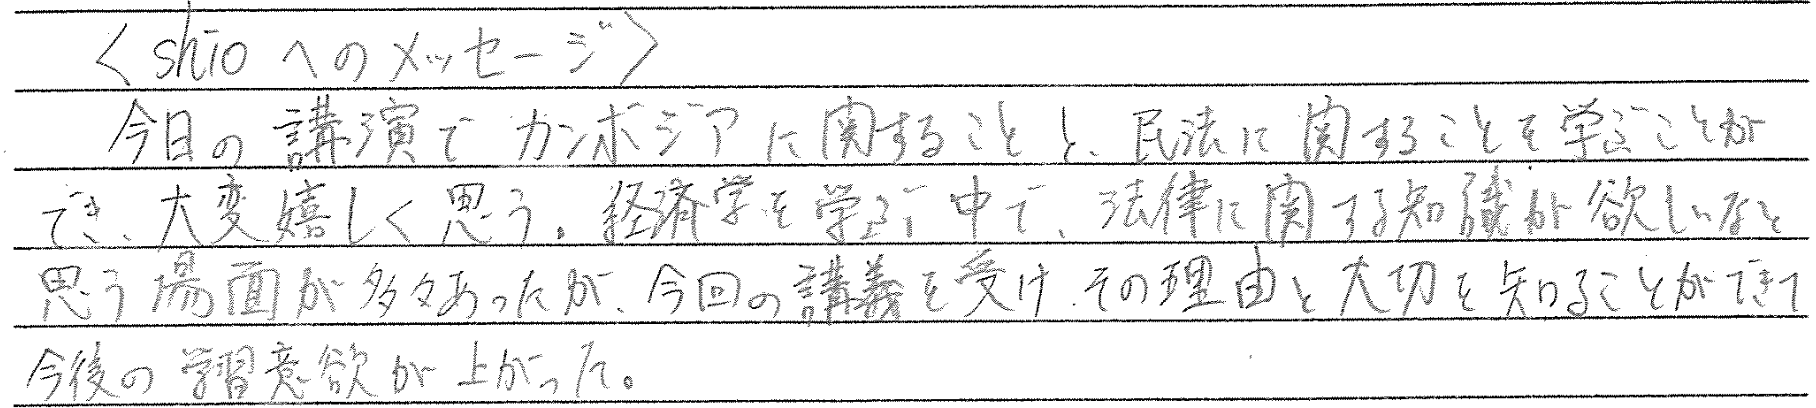 〈shioへのメッセージ〉
今日の講演でカンボジアに関することと、民法に関することを学ぶことが
でき、大変嬉しく思う。経済学を学ぶ中で、法律に関する知識が欲しいなと
思う場面が多々あったが、今回の講義を受け、その理由と大切を知ることができて
今後の学習意欲が上がった。